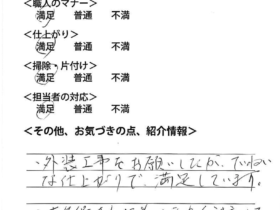 <職人のマナー>
満足 普通 不満
<仕上がり>
満足 普通 不満
<掃除・片付け>
満足 普通 不満
<担当者の対応>
満足 普通 不満
<その他、お気づきの点、紹介情報>
・外装工事をお願いしたが、ていねい
な仕上がりで、満足しています。